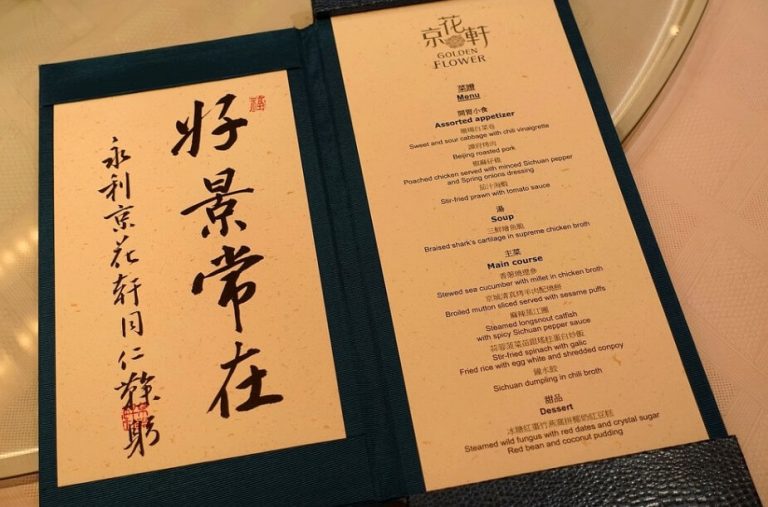 好景常在
永利京花轩同仁鞠躬
京花軒
GOLDEN
FLOWER
菜譜
Menu
開胃小食
Assorted appetizer
珊瑚白菜卷
Sweet and sour cabbage with chili vinaigrette
譚府烤肉
Beijing roasted pork
椒麻仔雞
Poached chicken served with minced Sichuan pepper
and Spring onions dressing
茄汁海蝦
Stir-fried prawn with tomato sauce
湯
Soup
三鮮燴魚脆
Braised shark's cartilage in supreme chicken broth
主菜
Main course
香蔥燒遼參
Stewed sea cucumber with millet in chicken broth
京城清真烤羊肉配燒餅
Broiled mutton sliced served with sesame puffs
麻辣蒸江團
Steamed longsnout catfish
with spicy Sichuan pepper sauce
蒜蓉菠菜苗跟瑤柱蛋白炒飯
Stir-fried spinach with galic
Fried rice with egg white and shredded conpoy
鐘水餃
Sichuan dumpling in chili broth
甜品
Dessert
冰糖紅棗竹燕窩拼椰奶紅豆糕
Steamed wild fungus with red dates and crystal sugar
Red bean and coconut pudding